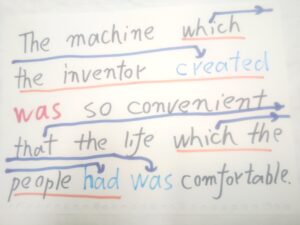 The machine which
the inventor created
was so convenient
that the life which the
people had was comfortable.